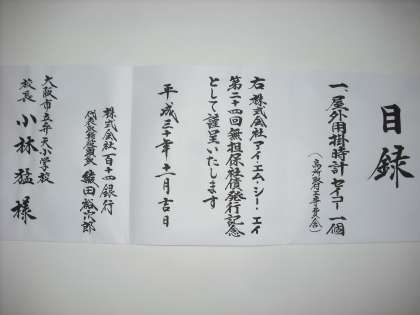 目録
一、屋外用掛時計 セイコー 一個
（高所取付工事費含）
右 株式会社アイ・エム・シー・エイ
第二十四回無担保社債発行記念
として謹呈いたします
平成三十年十二月吉日
株式会社 百十四銀行
代表取締役頭取 綾田裕次郎
大阪市立弁天小学校
校長 小林猛 様